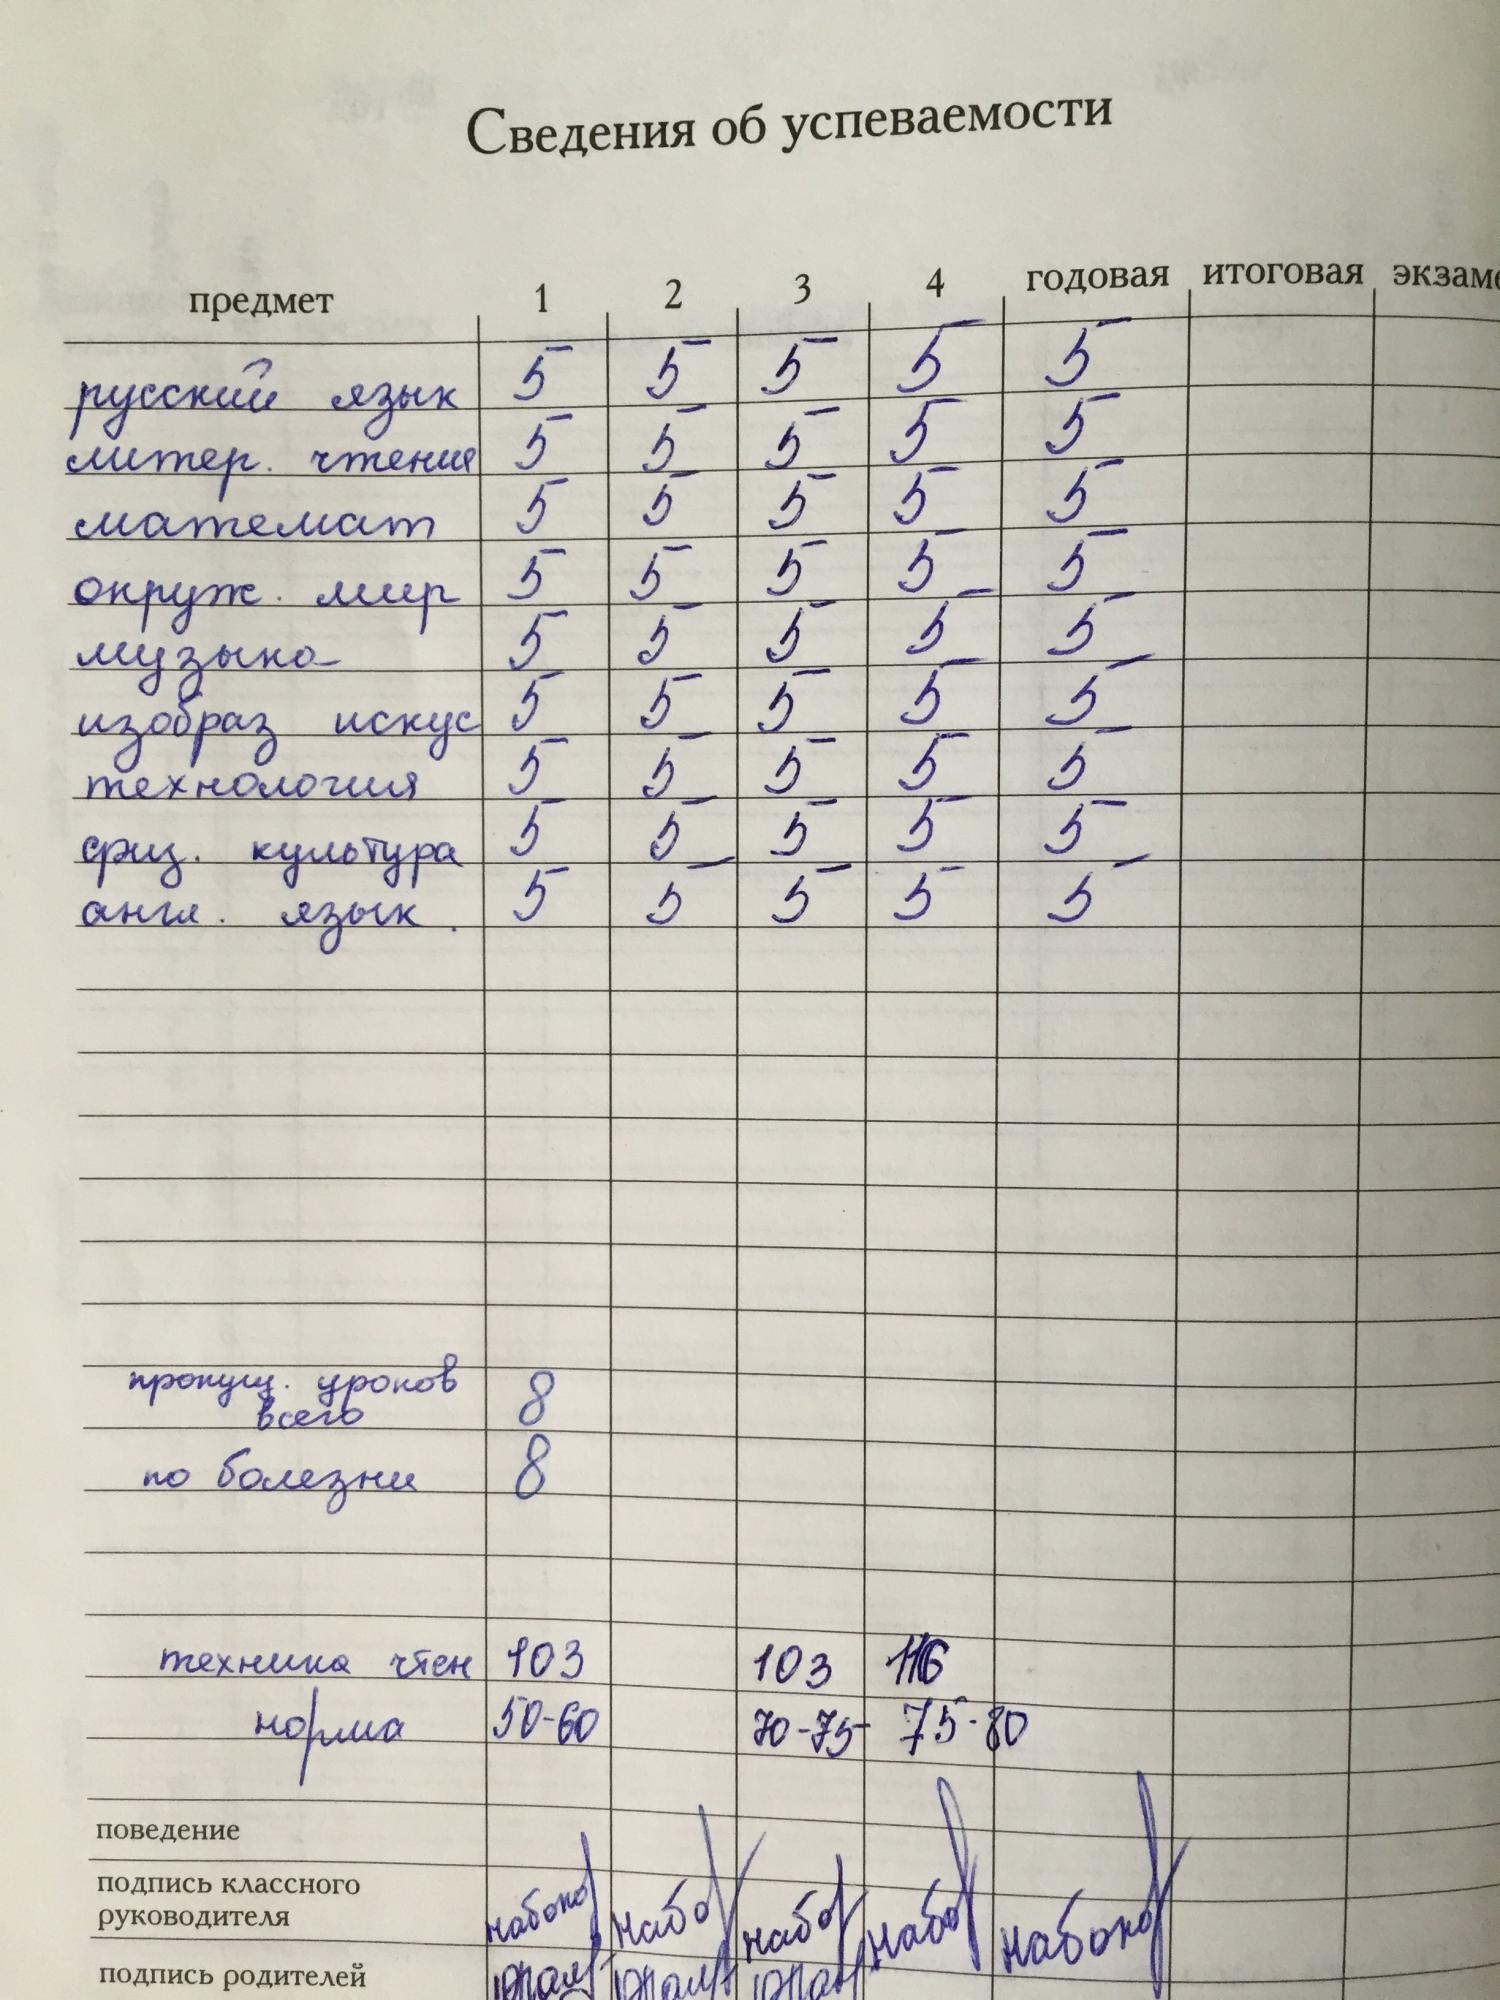 Сведения об успеваемости
предмет 1 2 3 4 годовая итоговая экзаме
русский язык 5 5 5 5 5
литер. чтение 5 5 5 5 5
математ 5 5 5 5 5
окруж. мир 5 5 5 5 5
музыка 5 5 5 5 5
изобраз искус 5 5 5 5 5
технология 5 5 5 5 5
физ. культура 5 5 5 5 5
англ. язык. 5 5 5 5 5
пропущ. уроков 8
всего
по болезни 8
техника чтен 103 103 116
норма 50-60 70-75 75-80
поведение
подпись классного
руководителя
подпись родителей